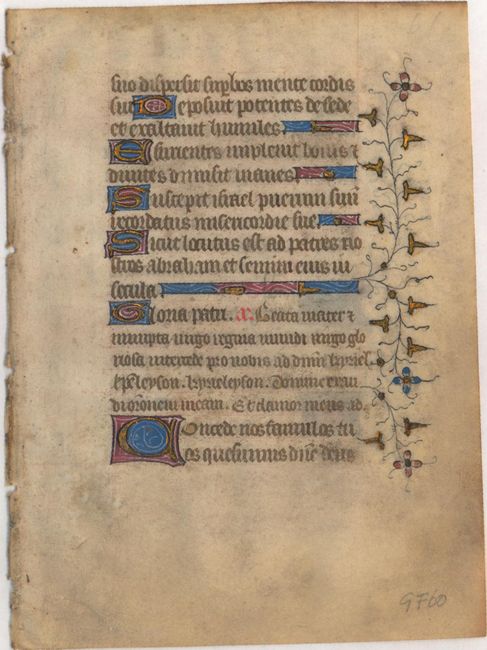 suo dispersit supbos mente cordis
sui Deposuit potentes de sede
et exaltavit humiles
Esurientes implevit bonis ⁊
divites dimisit inanes
Suscepit israel puerum suũ
recordatus misericordie sue
Sicut locutus est ad patres no
stros abraham et semini eius in
secula
Gloria patri. añ. Beata mater ⁊
innupta virgo regina mundi virgo glo
riosa intercede pro nobis ad dñm kyriel
xp̃eleyson. kyrieleyson. Domine exau
di orõnem meam. Et clamor meus ad
Concede nos famulos tu
os quesumus dñe deus
G760